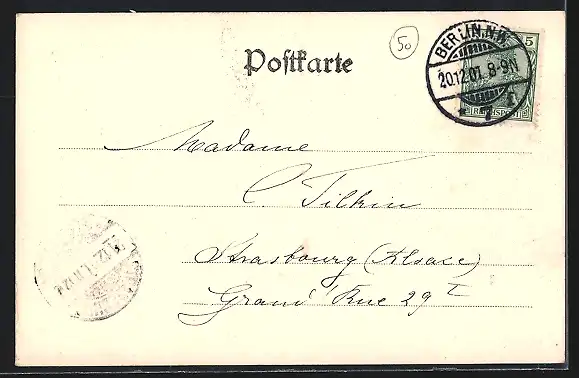 50
5
BERLIN.N.W.
20.12.01. 8-9N
REICHSPOST
Postkarte
Madame
C. Tilkin
Strasbourg (Alsace)
Grand' Rue 29 I